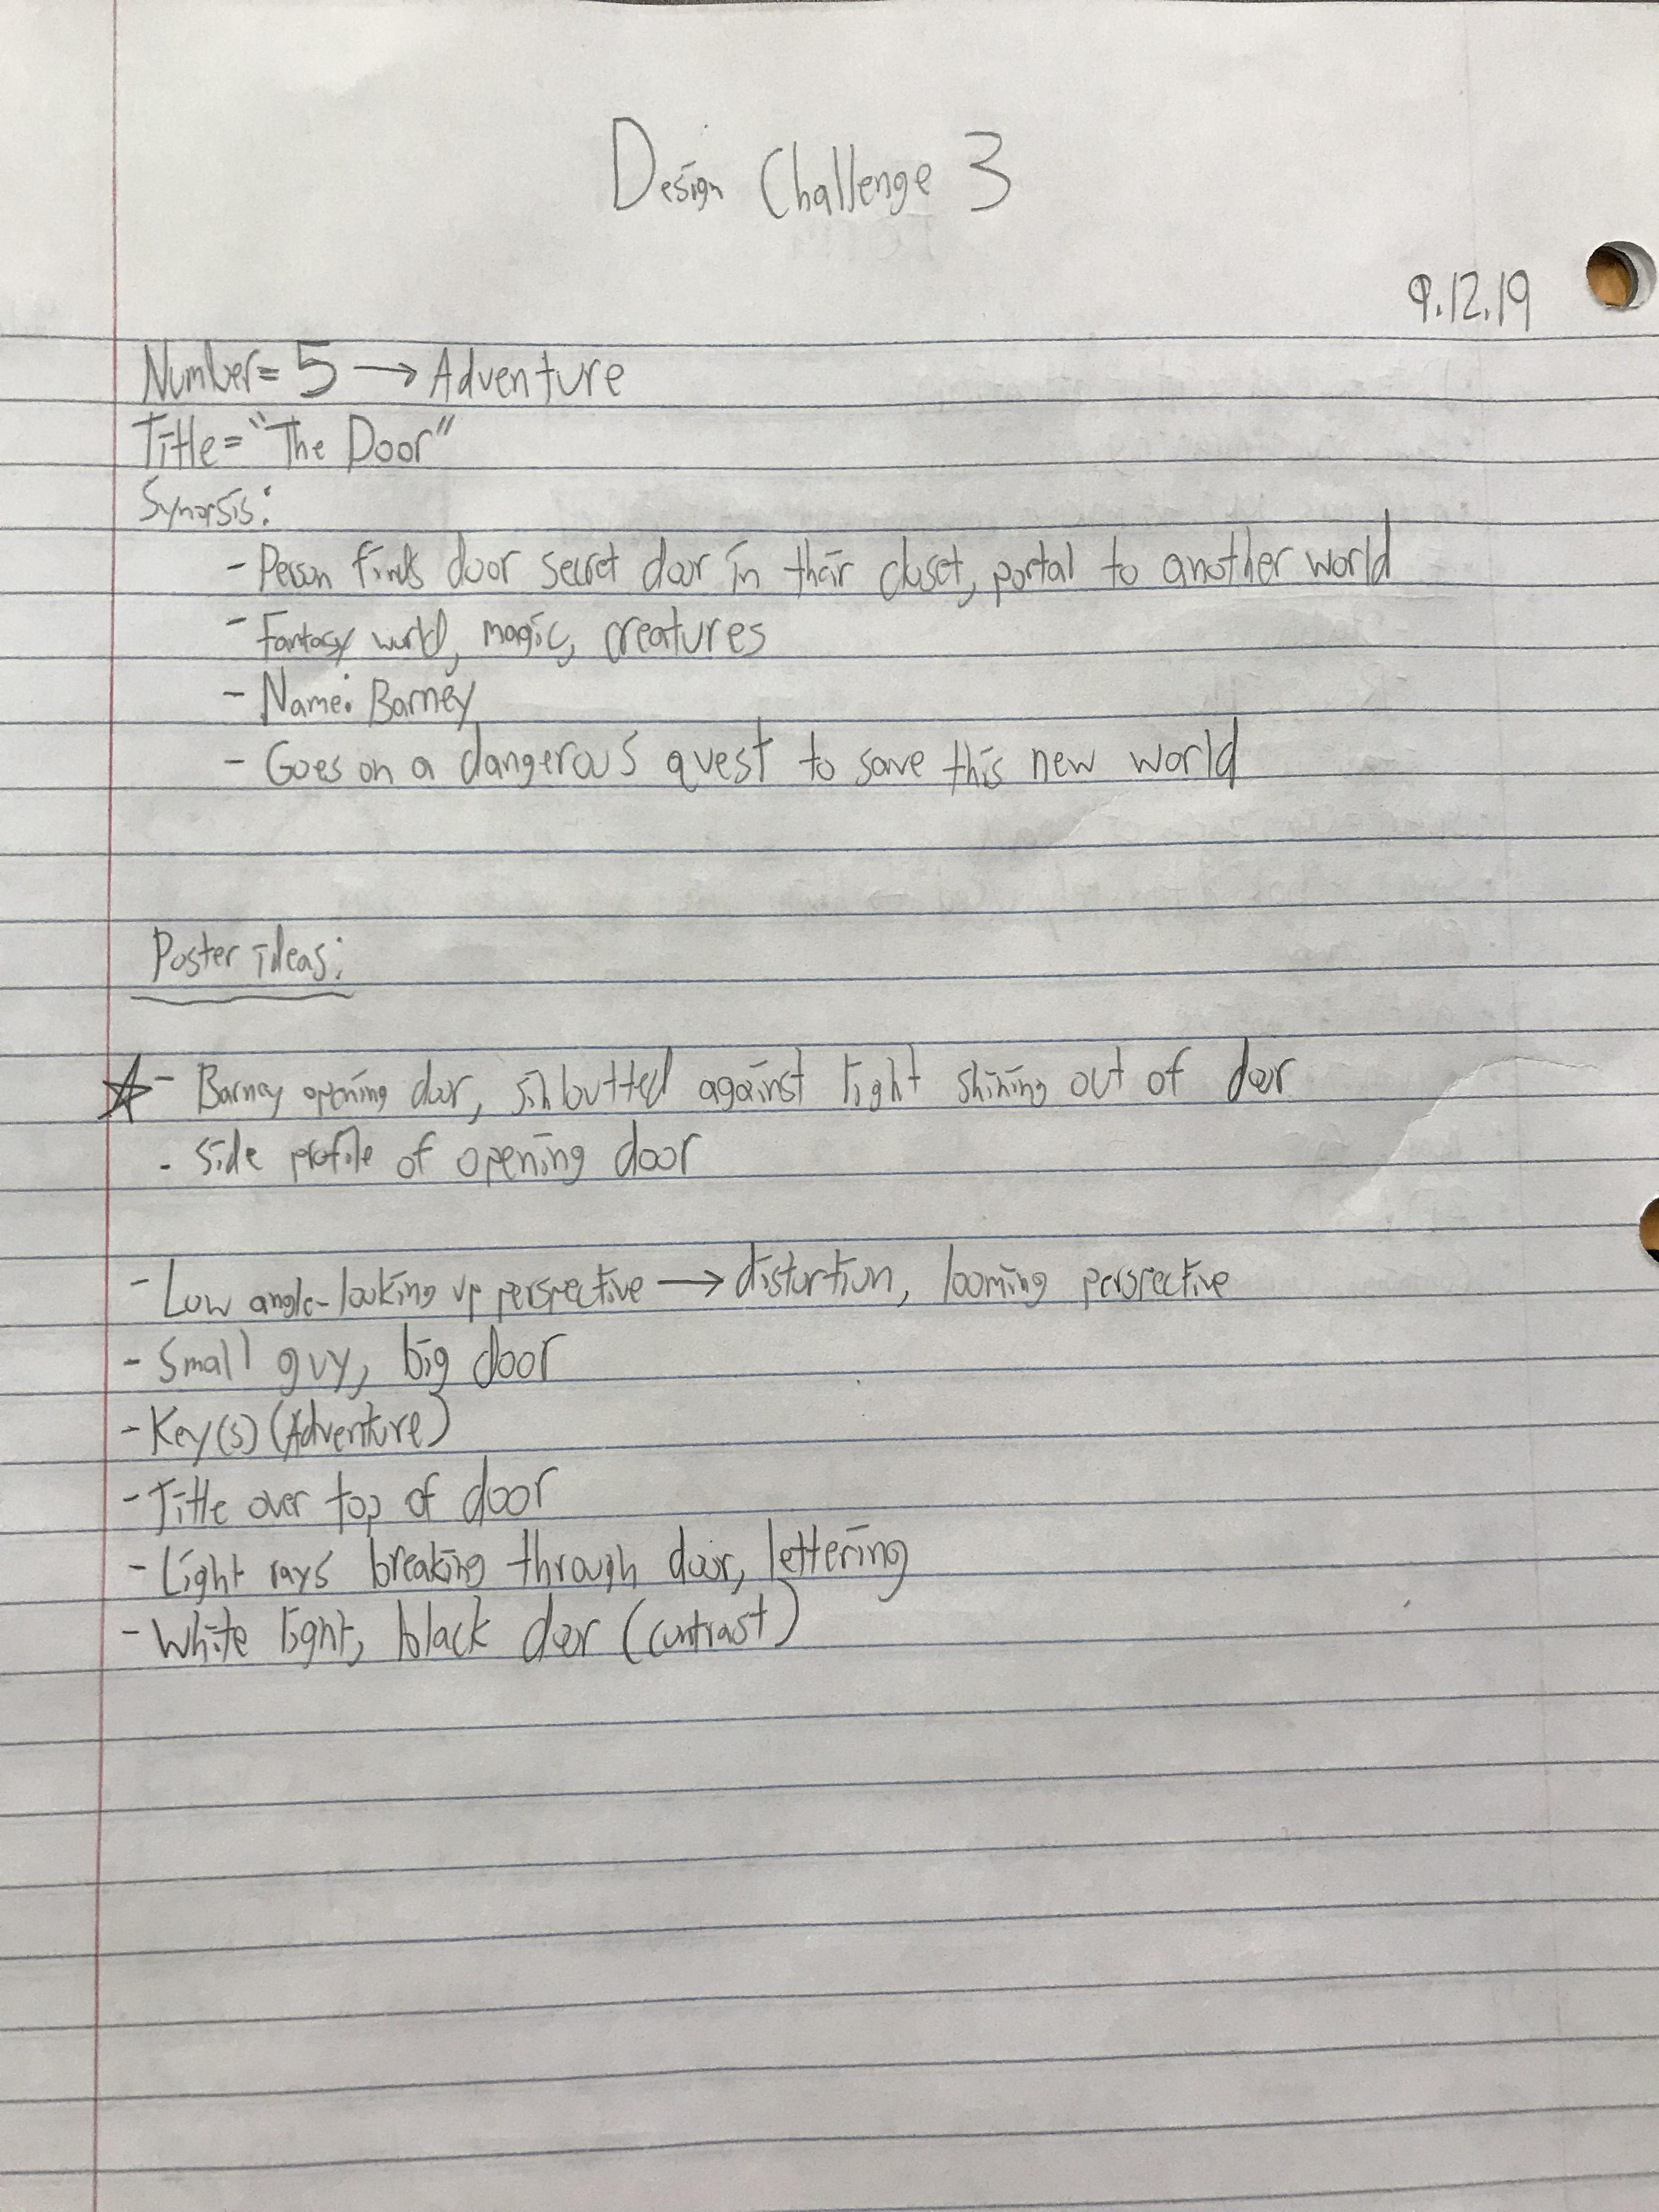 Design Challenge 3
9.12.19
Number = 5 → Adventure
Title = "The Door"
Synopsis:
- Person finds door secret door in their closet, portal to another world
- Fantasy world, magic, creatures
- Name: Barney
- Goes on a dangerous quest to save this new world
Poster ideas:
☆ - Barney opening door, sihloutted against light shining out of door
- side profile of opening door
- Low angle-looking up perspective → distortion, looming perspective
- Small guy, big door
- Key(s) (Adventure)
- Title over top of door
- Light rays breaking through door, lettering
- White light, black door (contrast)